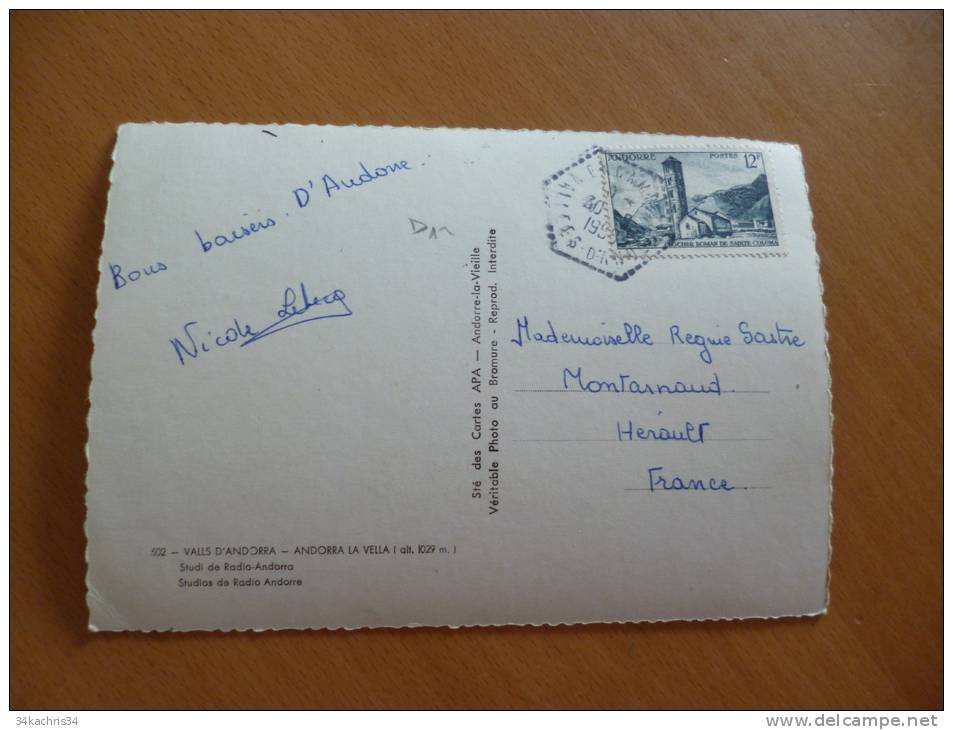 Bons baisers. D'Andorre.
Nicole
D12
Sté des Cartes APA — Andorre-la-Vieille
Véritable Photo au Bromure - Reprod. Interdite
ANDORRE POSTES 12F
CLOCHER ROMAN DE SAINTE COLOMA
Mademoiselle Regine Sastre
Montarnaud.
Herault
France.
502 — VALLS D'ANDORRA — ANDORRA LA VELLA ( alt. 1029 m. )
Studi de Radio-Andorra
Studios de Radio Andorre
34kachris34
www.delcampe.net